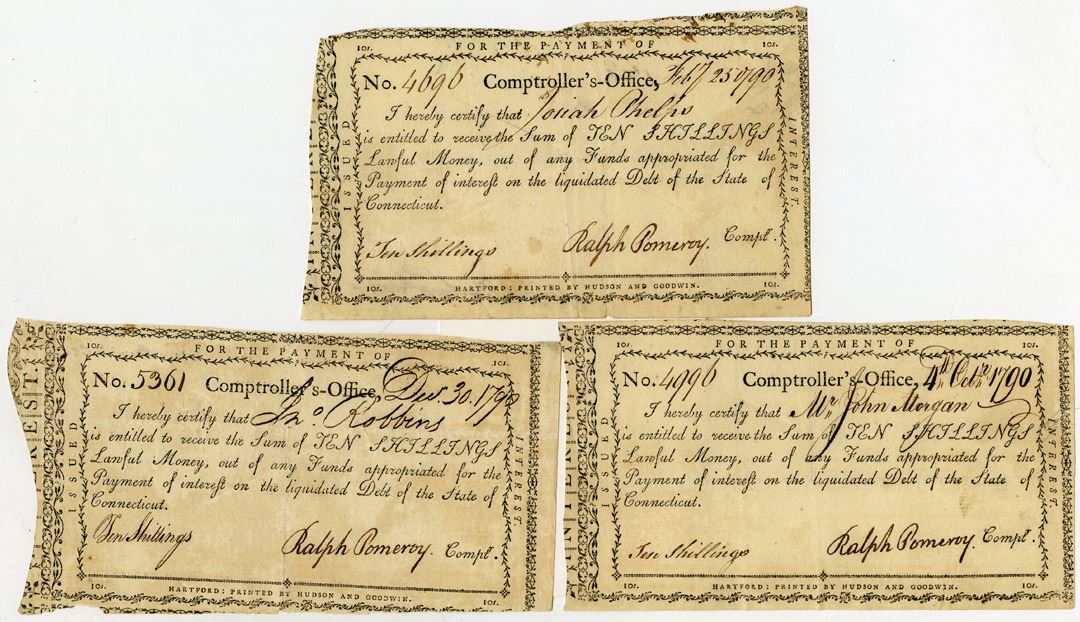 10s. FOR THE PAYMENT OF 10s.
No. 4696 Comptroller's-Office, Feby 25 1790
I hereby certify that Jonah Phelps
is entitled to receive the Sum of TEN SHILLINGS
Lawful Money, out of any Funds appropriated for the
Payment of intereſt on the liquidated Debt of the State of
Connecticut.
Ten Shillings Ralph Pomeroy. Compt.
10s. HARTFORD: PRINTED BY HUDSON AND GOODWIN. 10s.
ISSUED
INTEREST.
10s. FOR THE PAYMENT OF 10s.
No. 5361 Comptroller's-Office, Dec. 30. 1790
I hereby certify that Jno. Robbins
is entitled to receive the Sum of TEN SHILLINGS
Lawful Money, out of any Funds appropriated for the
Payment of intereſt on the liquidated Debt of the State of
Connecticut.
Ten Shillings Ralph Pomeroy. Compt.
10s. HARTFORD: PRINTED BY HUDSON AND GOODWIN. 10s.
ISSUED
INTEREST.
10s. FOR THE PAYMENT OF 10s.
No. 4996 Comptroller's-Office, 4th 1790
I hereby certify that Mr. John Morgan
is entitled to receive the Sum of TEN SHILLINGS
Lawful Money, out of any Funds appropriated for the
Payment of intereſt on the liquidated Debt of the State of
Connecticut.
Ten Shillings Ralph Pomeroy. Compt.
10s. HARTFORD: PRINTED BY HUDSON AND GOODWIN. 10s.
ISSUED
INTEREST.